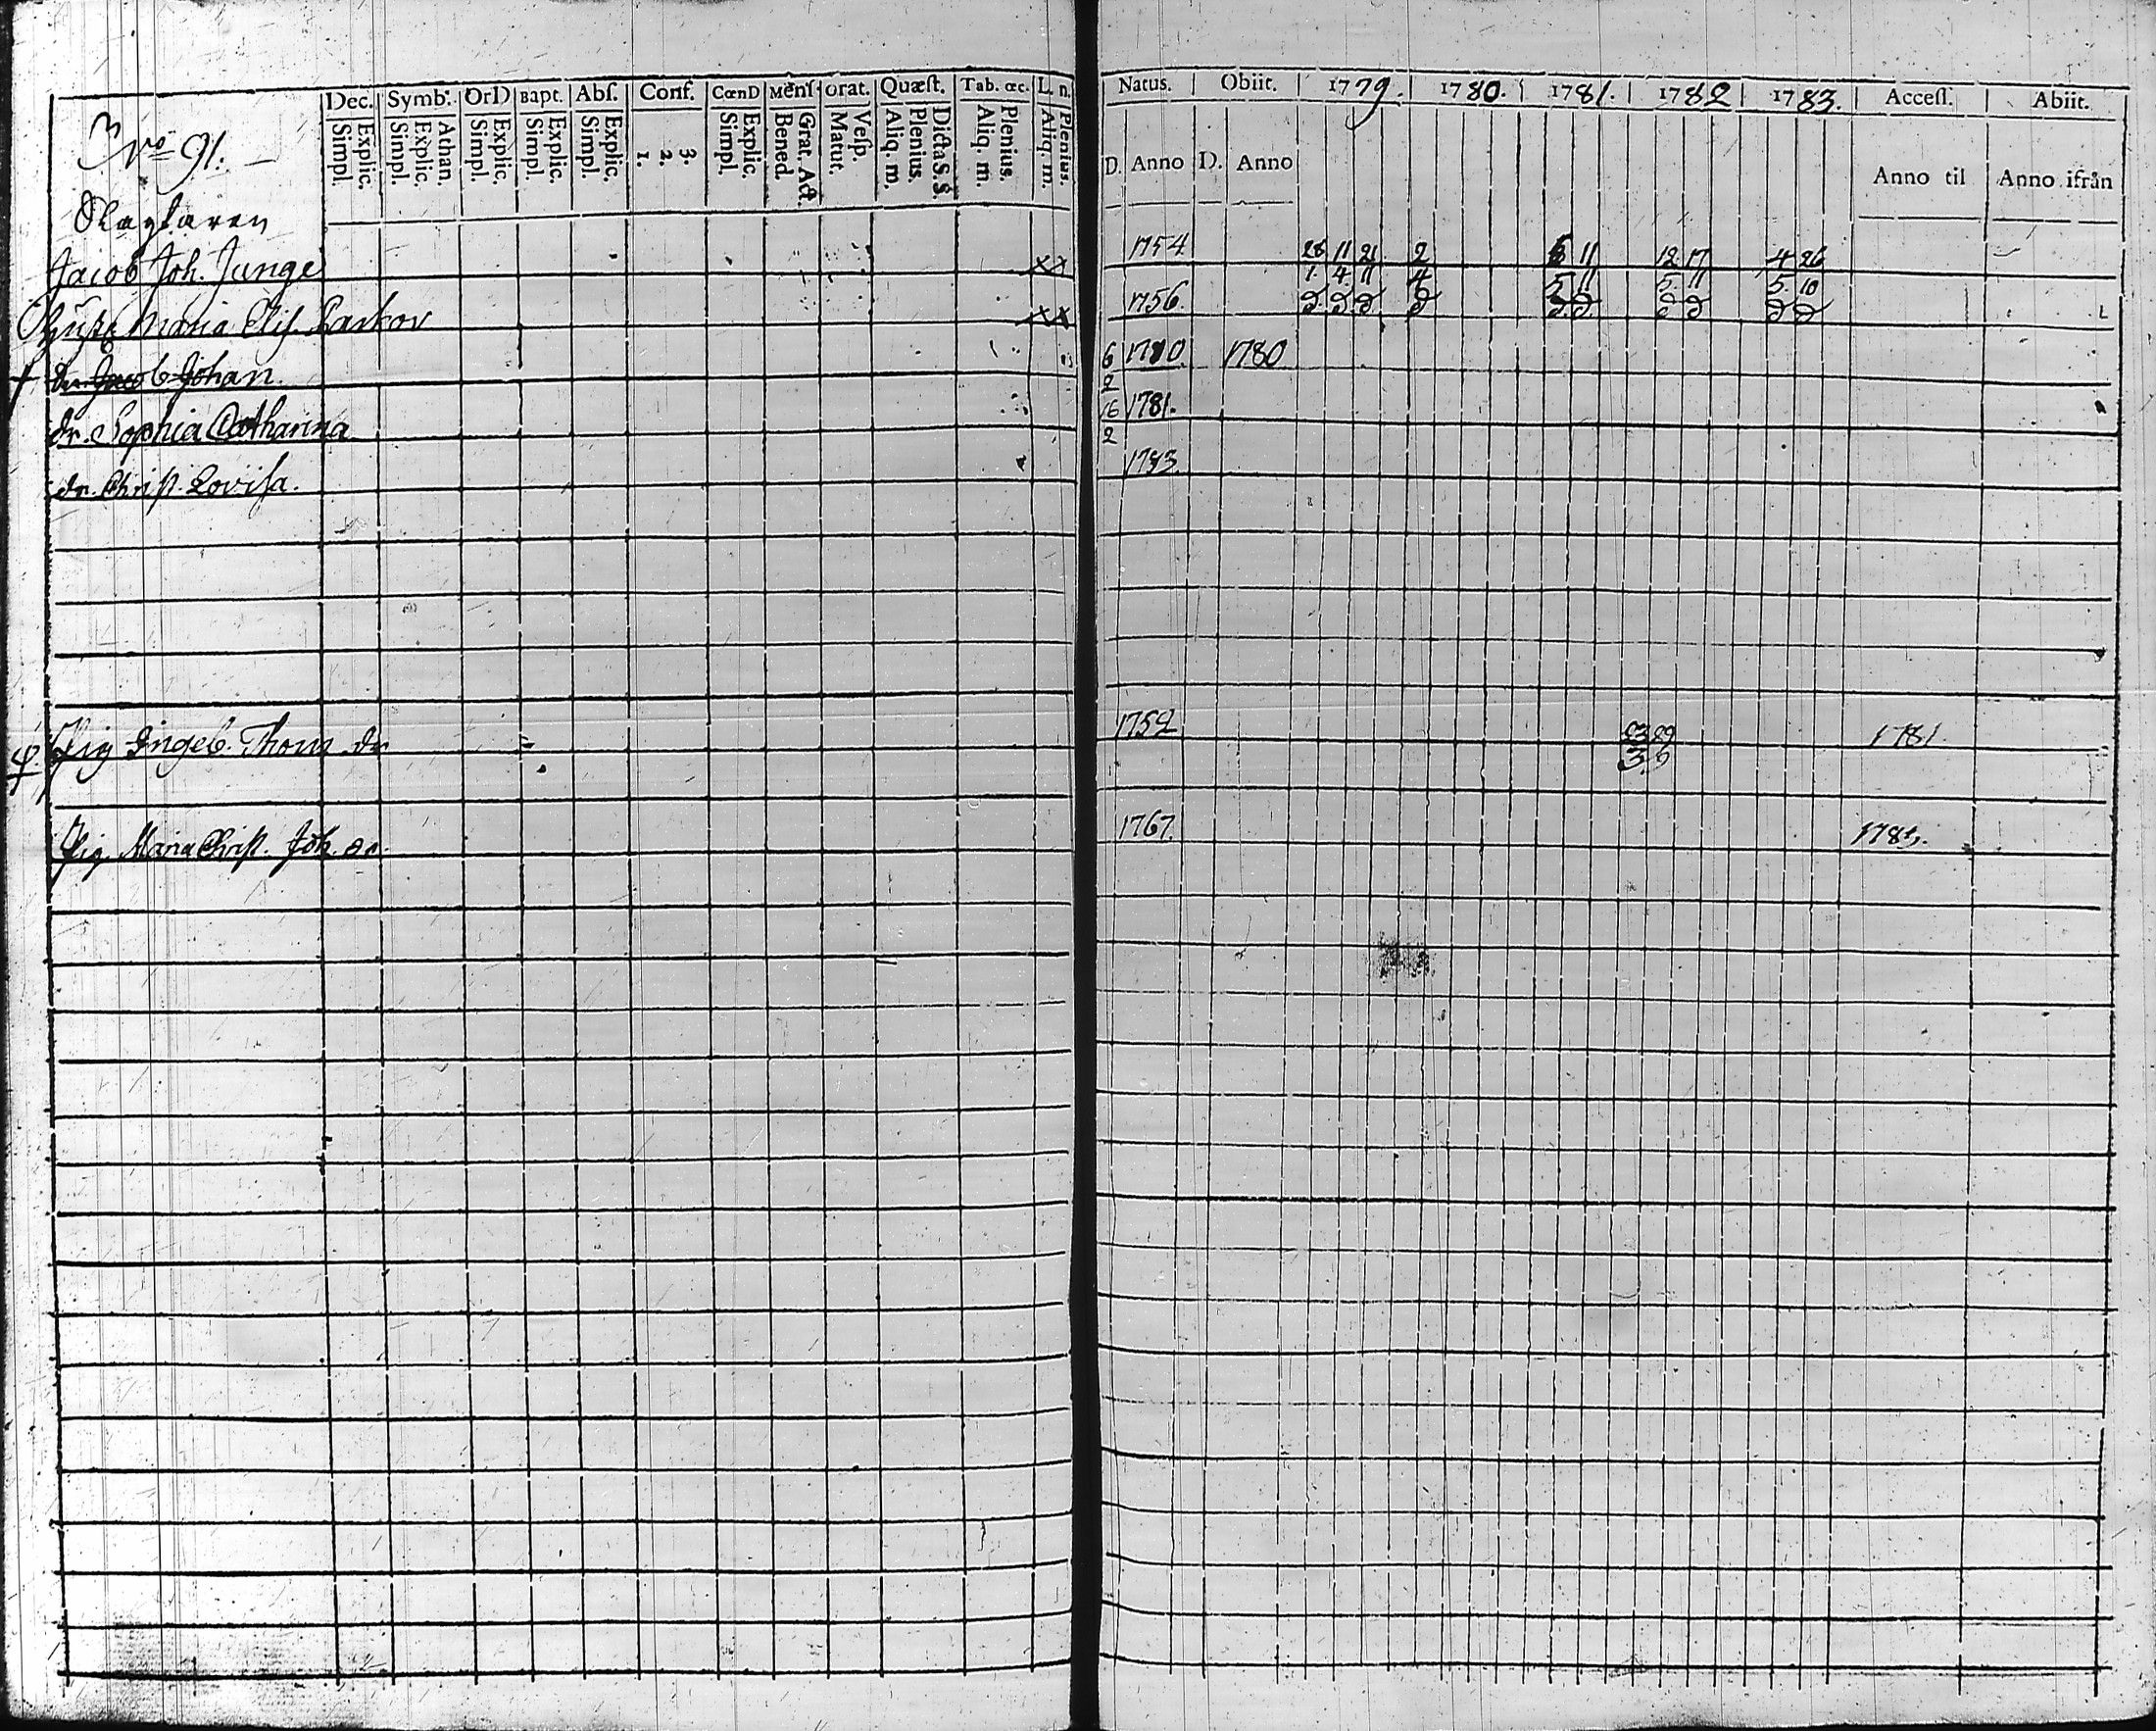 Dec. Symb. OrD Bapt. Abſ. Conf. CœnD Menſ. Orat. Quæſt. Tab. œc. L. n. Natus. Obiit. 1779. 1780. 1781. 1782 1783. Acceſſ. Abiit.
Simpl. Explic. Simpl. Explic. Athan. Simpl. Explic. Simpl. Explic. Simpl. Explic. 1. 2. 3. Simpl. Explic. Bened. Grat. Act. Matut. Veſp. Aliq. m. Plenius. Dicta S.S. Aliq. m. Plenius. Aliq. m. Plenius. D. Anno D. Anno Anno til Anno ifrån
Nro 91.
Jacob Joh. Junge xx 1754 26 11 21 2 11 12 17 4 26
1. 4. 11 4 5. 11 5. 11 5. 10
Maria Elis. xx 1756.
dr. Jacob Johan. 6 1780 1780
2
dr. Sophia Catharina 16 1781.
2
dr. Christ. Lovisa. 1783.
Pig Ingeb. Thom. dr 1752 1781
Pig. Maria Christ. Joh. dr. 1767.